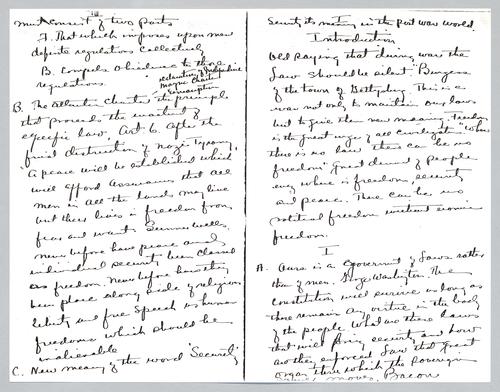 III
must consist of two parts
A. That which imposes upon men
definite regulations collectively
B. Compels obedience to those
regulations.
Declaration of Independence
Magna Charta
Emancipation
B. The Atlantic Charter the principle
that proceeds the enactment of
specific law. Art 6 after the
final destruction of Nazi Tyranny,
a peace will be established which
will afford assurance that all
men in all the lands may live
out their lives in freedom from
fear and want Sumner Welles.
Never before have peace and
individual security been classed
as freedom. Never before have they
been place along side of religious
liberty and free Speech as human
freedoms which should be
inalienable
C. New meaning of the word 'Security'
Security its meaning in the Post War World
Introduction
Old saying that during wars the
Law should be silent Burgess
of the town of Gettysburg. This is a
war not only to maintain our laws
but to give them new meaning. Freedom
is the great urge of all
there is no law there can be no
freedom" Great demand of people
every where is freedom security
and peace. There can be no
political freedom without economic
freedom.
I
A. Ours is a government of Laws rather
than of men. George Washington. The
Constitution will survive as long as
there remain any virtue in the body
of the people What are these laws
that will bring security and how
are they enforced Law the great
organ thru which the sovereign
power moves Bacon